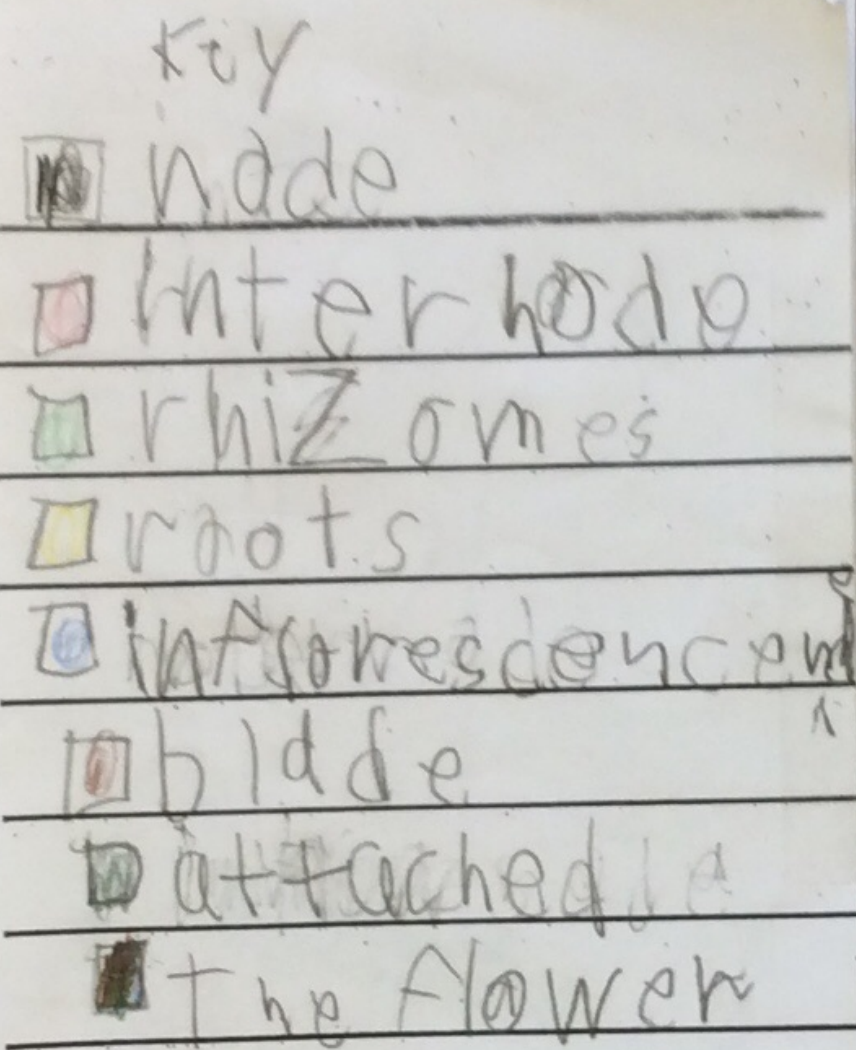 Key
node
internode
rhizomes
roots
infloresdencend
blade
attached
the flower